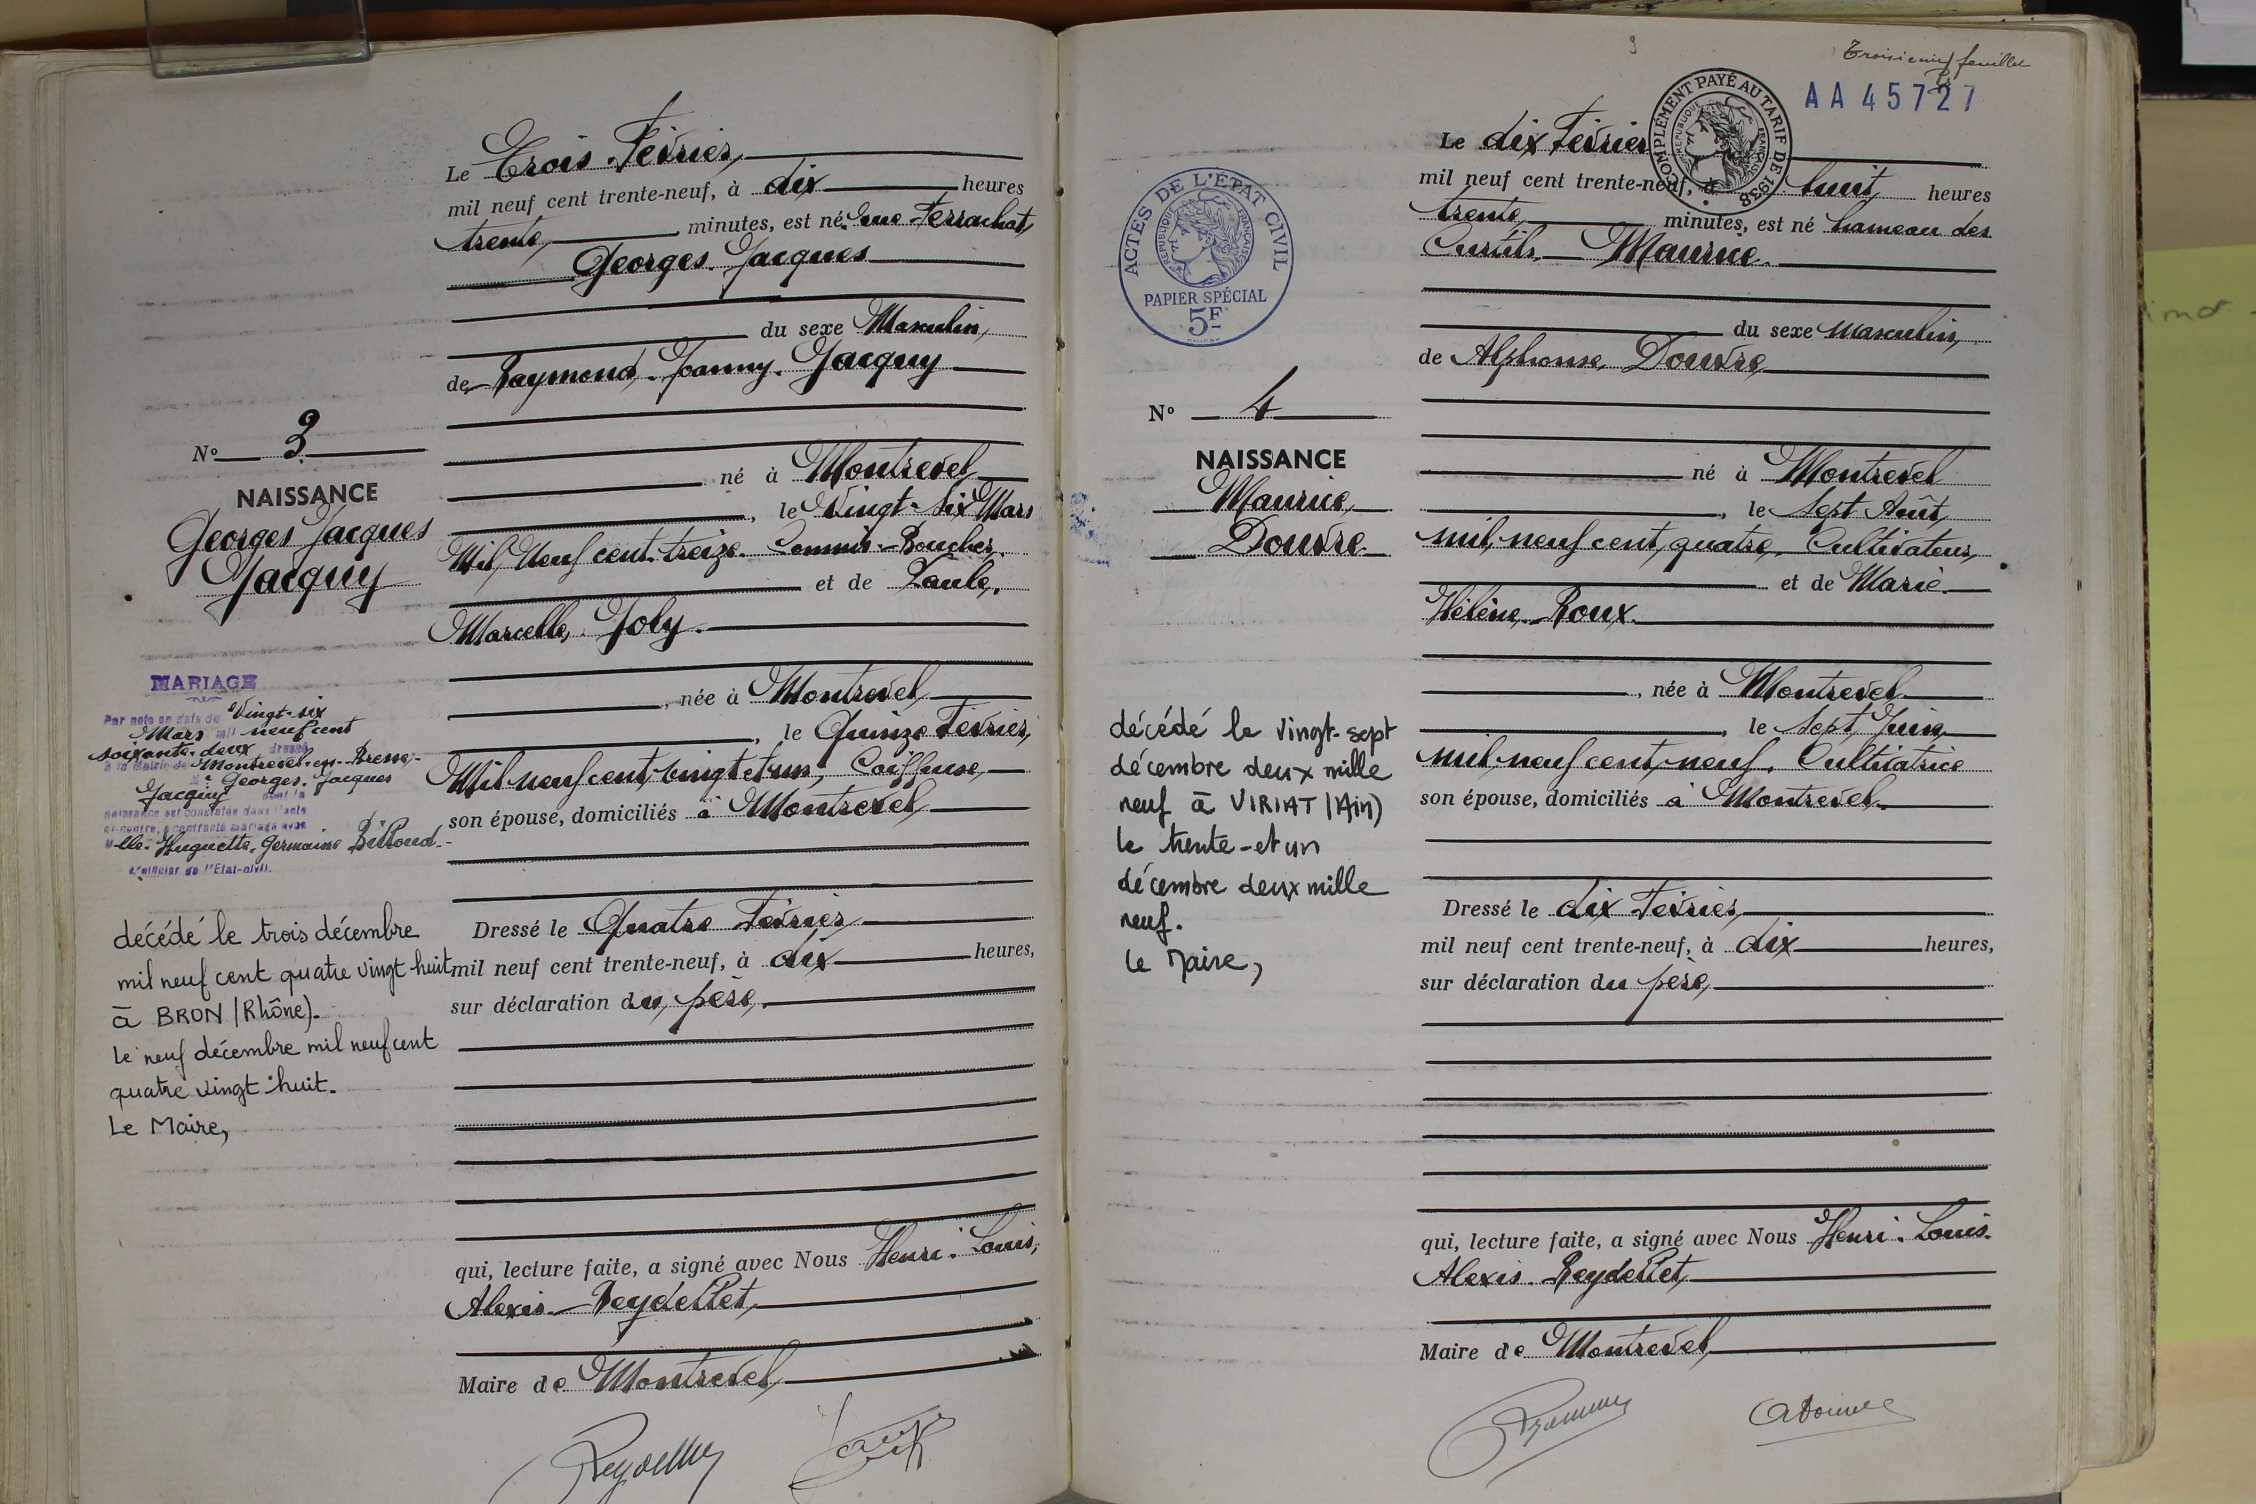 Le Trois Février,
mil neuf cent trente-neuf, à dix heures
trente, minutes, est né rue Ferrachat,
Georges Jacques
du sexe Masculin,
de Raymond Joanny Jacquy
né à Montrevel
, le Vingt-six Mars
Mil Neuf cent treize. Commis-Boucher.
et de Paule,
Marcelle, Joly.
, née à Montrevel
, le Quinze Février,
Mil neuf cent vingt et un, Coiffeuse,
son épouse, domiciliés à Montrevel
Dressé le Quatre Février,
mil neuf cent trente-neuf, à dix heures,
sur déclaration du père.
qui, lecture faite, a signé avec Nous Henri-Louis,
Alexis Reydellet,
Maire de Montrevel,
N° 3
NAISSANCE
Georges Jacques
Jacquy
MARIAGE
Par note en date du Vingt-six
Mars mil neuf cent
soixante-deux dressé
à la Mairie de Montrevel-en-Bresse
Georges Jacques
Jacquy dont la
naissance est constatée dans l'acte
ci-contre, a contracté mariage avec
Mlle Huguette Germaine
L'officier de l'Etat-civil.
décédé le trois décembre
mil neuf cent quatre vingt huit
à BRON (Rhône).
Le neuf décembre mil neuf cent
quatre vingt huit.
Le Maire,
Troisième feuillet
AA 45727
COMPLÉMENT PAYÉ AU TARIF DE 1938
RÉPUBLIQUE FRANÇAISE
ACTES DE L'ÉTAT CIVIL
RÉPUBLIQUE FRANÇAISE
PAPIER SPÉCIAL
5F
Le dix Février
mil neuf cent trente-neuf, à huit heures
trente, minutes, est né hameau des
Curtils. Maurice.
du sexe masculin,
de Alphonse Douvre,
né à Montrevel
, le Sept Août,
mil neuf cent quatre, Cultivateur,
et de Marie
Hélène Roux.
, née à Montrevel
, le Sept Juin
mil neuf cent neuf, Cultivatrice
son épouse, domiciliés à Montrevel.
Dressé le dix Février,
mil neuf cent trente-neuf, à dix heures,
sur déclaration du père,
qui, lecture faite, a signé avec Nous Henri-Louis
Alexis Reydellet,
Maire de Montrevel,
N° 4
NAISSANCE
Maurice
Douvre
décédé le vingt-sept
décembre deux mille
neuf à VIRIAT (Ain)
le trente-et un
décembre deux mille
neuf.
Le Maire,